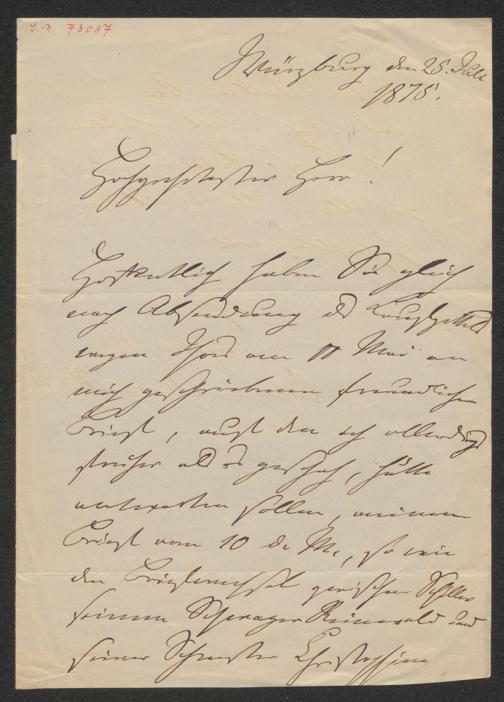 J. N. 73087
Würzburg den 25. Juli
1875.
Hochgeehrtester Herr!
Hoffentlich haben Sie gleich
nach Absendung des
wegen Ihres am 11 Mai an
mich geschriebenen freundlichen
Briefs, auf den ich allerdings
früher als es geschah, hätte
antworten sollen, meinen
Brief vom 10 d. M., so wie
den Briefwechsel zwischen Schiller
seinem Schwager Reinwald und
seiner Schwester Christophine